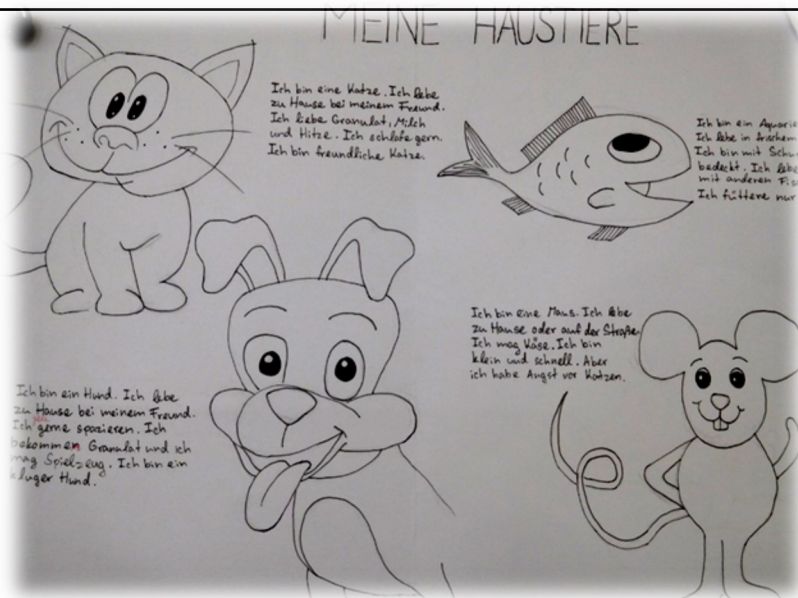 MEINE HAUSTIERE
Ich bin eine Katze. Ich lebe
zu Hause bei meinem Freund.
Ich liebe Granulat, Milch
und Hitze. Ich schlafe gern.
Ich bin freundliche Katze.
Ich bin ein
Ich lebe in frischem
Ich bin mit
bedeckt. Ich lebe
mit anderen
Ich füttere nur
Ich bin eine Maus. Ich lebe
zu Hause oder auf der Straße.
Ich mag Käse. Ich bin
klein und schnell. Aber
ich habe Angst vor Katzen.
Ich bin ein Hund. Ich lebe
zu Hause bei meinem Freund.
Ich gerne spazieren. Ich
bekommen Granulat und ich
mag Spielzeug. Ich bin ein
kluger Hund.